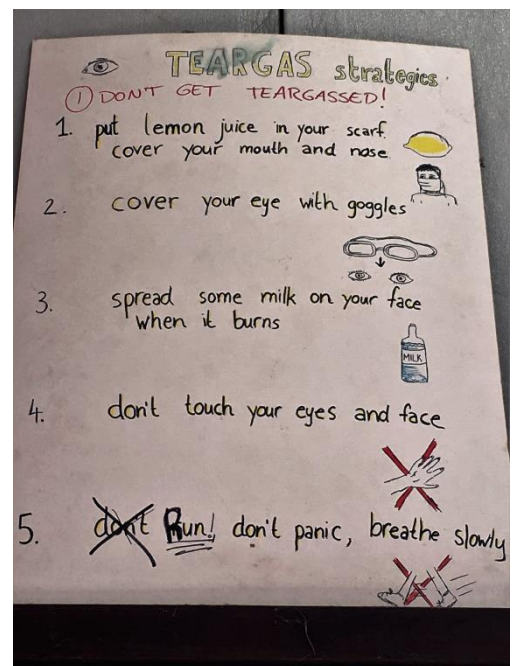 TEARGAS strategies
① DON'T GET TEARGASSED!
1. put lemon juice in your scarf.
cover your mouth and nose
2. cover your eye with goggles
3. spread some milk on your face
when it burns
MILK
4. don't touch your eyes and face
5. don't Run! don't panic, breathe slowly